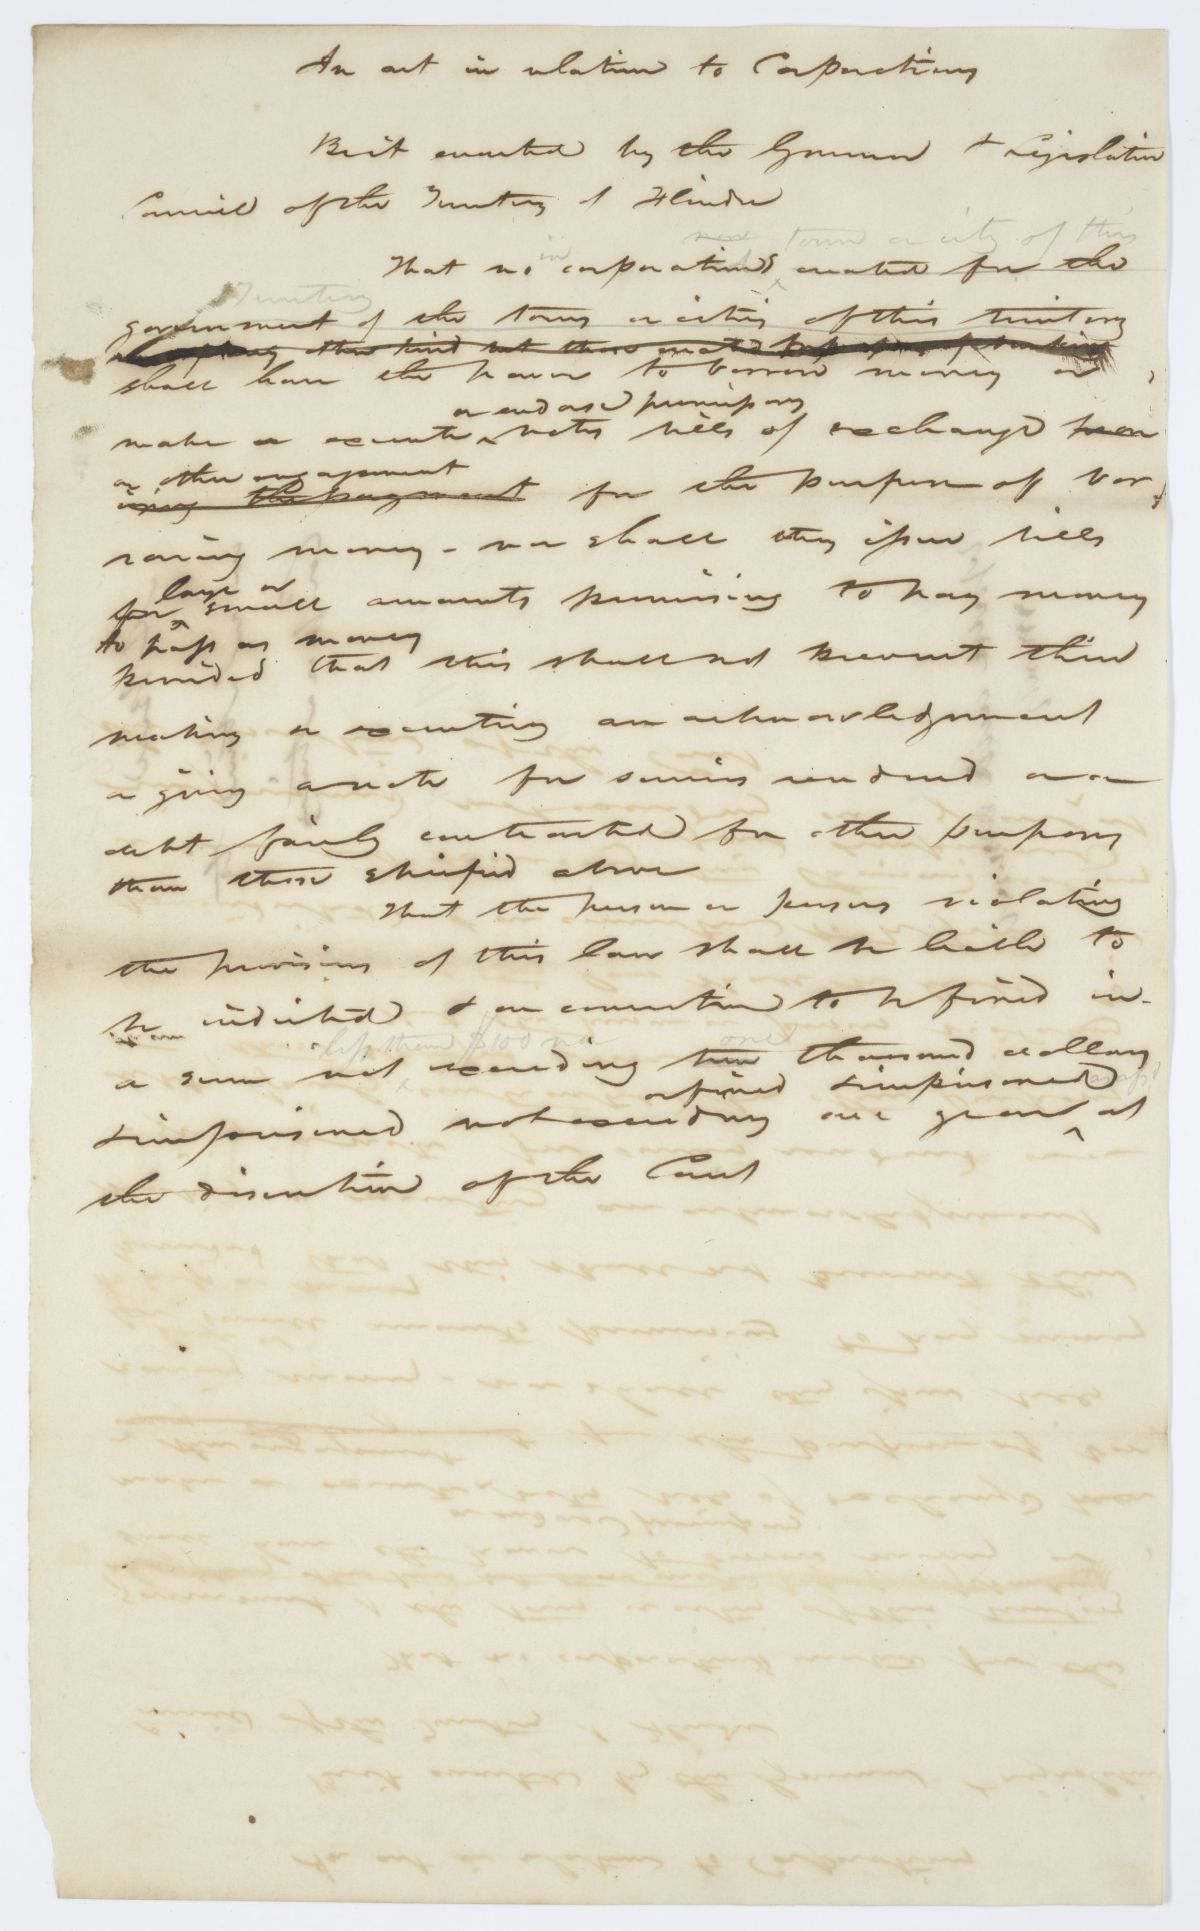 An act in relation to Corporations
Be it enacted by the Governor & Legislative
Council of the Territory of Florida
town or city of this
That no in corporations created for the
Territory
government of the towns or cities of this territory
other kind but those
shall have the power to borrow money or
or endorse promissory
make or execute notes bills of exchange
or other engagement
for the purpose of bor
rowing money - nor shall they issue bills
large or
for small amounts promising to pay money
to pass as money
provided that this shall not prevent their
making or executing an acknowledgment
or giving a note for services rendered or a
debt fairly contracted for other purposes
than those specified above
That the person or persons violating
the provisions of this law shall be liable to
be indicted & on conviction to be fined in
less than $100 nor one
a sum not exceeding two thousand dollars
or fined & imprisoned
& imprisoned not exceeding one year at
the discretion of the Court